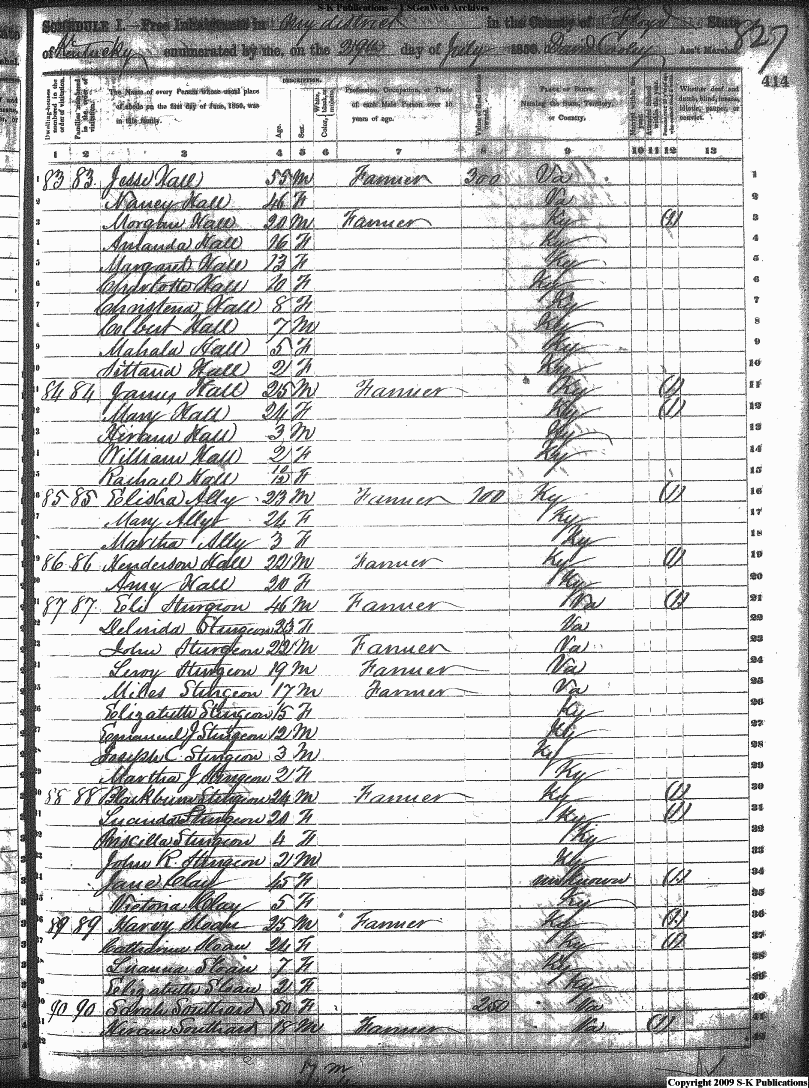 S-K Publications - USGenWeb Archives
SCHEDULE I.—Free Inhabitants in Any district in the County of Floyd State
of Kentucky enumerated by me, on the 29th day of July 1850. David Ass't Marshal.
827
414
DESCRIPTION.
Dwelling-houses numbered in the order of visitation.
Families numbered in the order of visitation.
The Name of every Person whose usual place of abode on the first day of June, 1850, was in this family.
Age.
Sex.
Color, White, black, or mulatto.
Profession, Occupation, or Trade of each Male Person over 15 years of age.
Value of Real Estate owned.
PLACE OF BIRTH. Naming the State, Territory, or Country.
Married within the year.
Whether deaf and dumb, blind, insane, idiotic, pauper, or convict.
1 2 3 4 5 6 7 8 9 10 11 12 13
83 83 Jesse Hall 55 M Farmer 300 Va 1
Nancy Hall 46 F Va 2
Morgan Hall 20 M Farmer Ky (1) 3
Amanda Hall 16 F Ky 4
Margaret Hall 13 F Ky 5
Charlotte Hall 10 F Ky 6
Christena Hall 8 F Ky 7
Colbert Hall 7 M Ky 8
Mahala Hall 5 F Ky 9
Hall 2 F Ky 10
84 84 James Hall 25 M Farmer Ky (1) 11
Mary Hall 24 F Ky (1) 12
Hiram Hall 3 M Ky 13
William Hall 2 F Ky 14
Rachael Hall 10/12 F 15
85 85 Elisha Ally 23 M Farmer 100 Ky (1) 16
Mary Ally 24 F Ky 17
Martha Ally 3 F Ky 18
86 86 Henderson Hall 22 M Farmer Ky (1) 19
Amy Hall 20 F Ky 20
87 87 Eli Sturgeon 46 M Farmer Va (1) 21
Delinda Sturgeon 23 F Va 22
John Sturgeon 22 M Farmer Va 23
Leroy Sturgeon 19 M Farmer Va 24
Miles Sturgeon 17 M Farmer Va 25
Elizabeth Sturgeon 15 F Ky 26
Emanuel J Sturgeon 12 M Ky 27
Joseph C. Sturgeon 3 M Ky 28
Martha J Sturgeon 2 F Ky 29
88 88 Blackburn Sturgeon 24 M Farmer Ky (1) 30
Luanda Sturgeon 20 F Ky (1) 31
Priscilla Sturgeon 4 F Ky 32
John R. Sturgeon 2 M Ky 33
Jane Clay 45 F unknown (1) 34
Victoria Clay 5 F Ky 35
89 89 Harvy Sloan 25 M Farmer Ky (1) 36
Catherine Sloan 24 F Ky (1) 37
Luanna Sloan 7 F Ky 38
Elizabeth Sloan 2 F Ky 39
90 90 Sarah Southard 50 F 250 Va
Hiram Southard 18 M Farmer Va (1)
42
17 m
Copyright 2009 S-K Publications